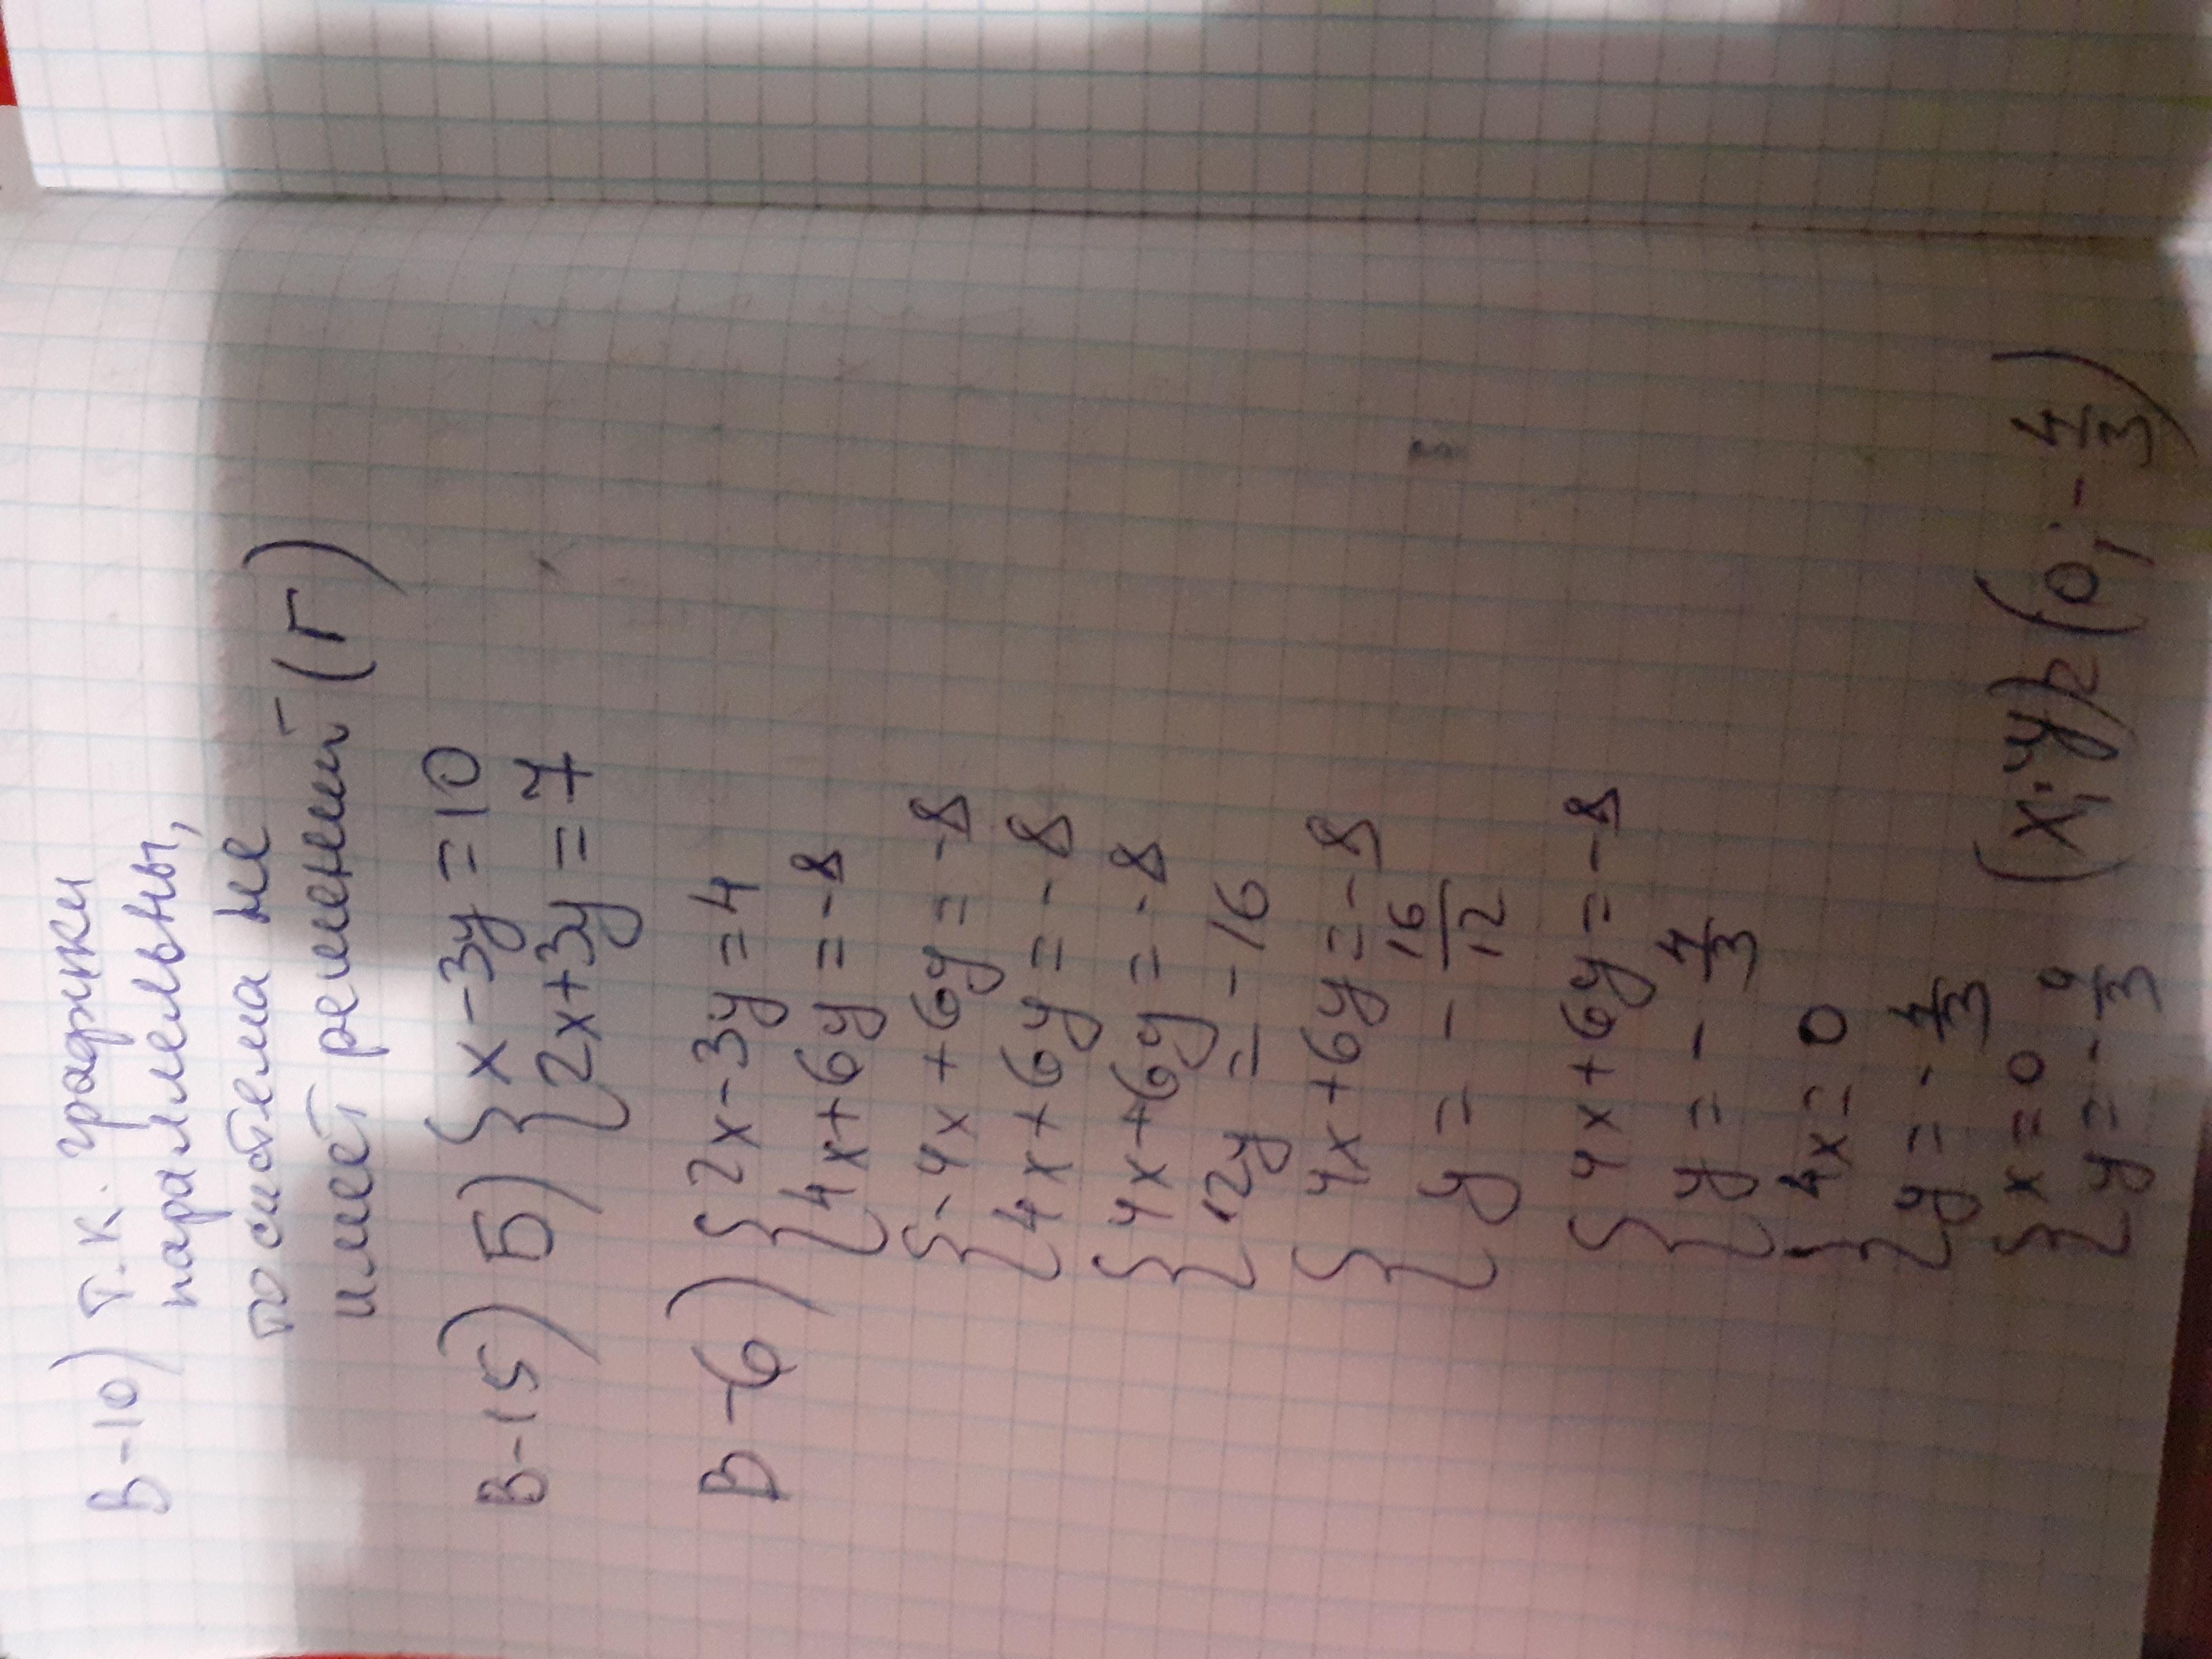 В-10) т.к. графики
паралельны,
то система не
имеет решений (Г)
В-15) Б) { x-3y=10
2x+3y=7
В-6) { 2x-3y=4
4x+6y=-8
{ -4x+6y=-8
4x+6y=-8
{ 4x+6y=-8
12y=-16
{ 4x+6y=-8
y=-16/12
{ 4x+6y=-8
y=-4/3
{ 4x=0
y=-4/3
{ x=0
y=-4/3 (x;y)=(0;-4/3)